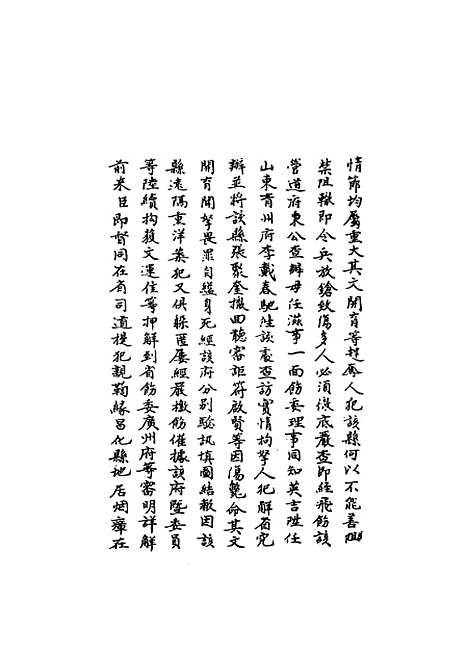 情節均屬重大其文開育等趕屬人犯該縣何以不能善為
禁阻輙即令兵放鎗致傷多人必須徹底嚴查即經飛飭該
營道府秉公查辦毋任滋事一面飭委理事同知英吉陞任
山東青州府李戴春馳徃該處查訪實情拘拏人犯解省究
辦並將該縣張聚奎撤回聽審詎符啟賢等因傷斃命其文
開育聞拏畏罪自縊身死經該府分别驗訊填圖結報因該
縣遠隔重洋案犯又俱躱匿屢經嚴檄飭催據該府暨委員
等陸續拘獲文運住等押解到省飭委廣州府等審明詳解
前来臣即督同在省司道提犯親鞫緣昌化縣地居烟瘴在